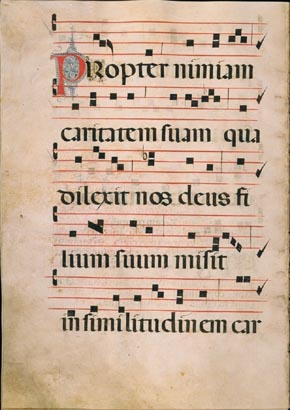 PRopter nimiam
caritatem suam qua
dilexit nos deus fi
lium suum misit
in similitudinem car